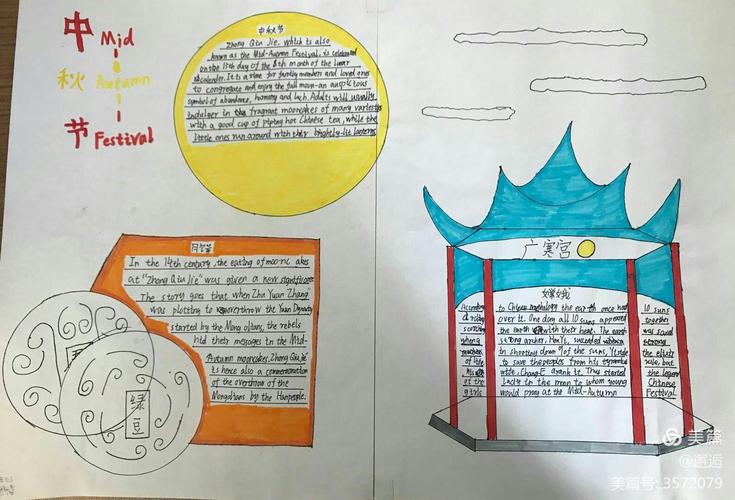 中 Mid
秋 Autumn
节 Festival
中秋节
Zhong Qiu Jie, which is also
known as the Mid-Autumn Festival, is celebrated
on the 15th day of the 8th month of the lunar
calender. It is a time for family members and loved ones
to congregate and enjoy the full moon-an auspicious
symbol of abundance, harmony and luck. Adults will usually
indulge in the fragrant mooncakes of many varieties
with a good cup of piping hot Chinese tea, while the
little ones run around with their brightly-lit lanterns
In the 14th century, the eating of moonc akes
at "Zhong Qiu Jie" was given a new significance
The story goes that when Zhu Yuan Zhang
was plotting to overthrow the Yuan Dynasty
started by the Mongolians, the rebels
hid their messages in the Mid-
Autumn mooncakes. Zhong Qiu Jie
is hence also a commemoration
of the overthrow of the
Mongolians by the Hanpeople.
绿
豆
广寒宫
嫦娥
to Chinese the earth once had 10 suns
over it. One day all 10 suns appeared together
the earth with their heat. The earth was saved
strong archer, Hou Yi, succeeded strong
in shooting down 9 of the suns, Yi stole the elixir
to save the peoples from his tyrannical rule, but
wife, Chang-E drank it. Thus started the legend
lady in the moon to whom young Chinese
girls would pray at the Mid-Autumn Festival
美篇
@邂逅
美篇号:3572079